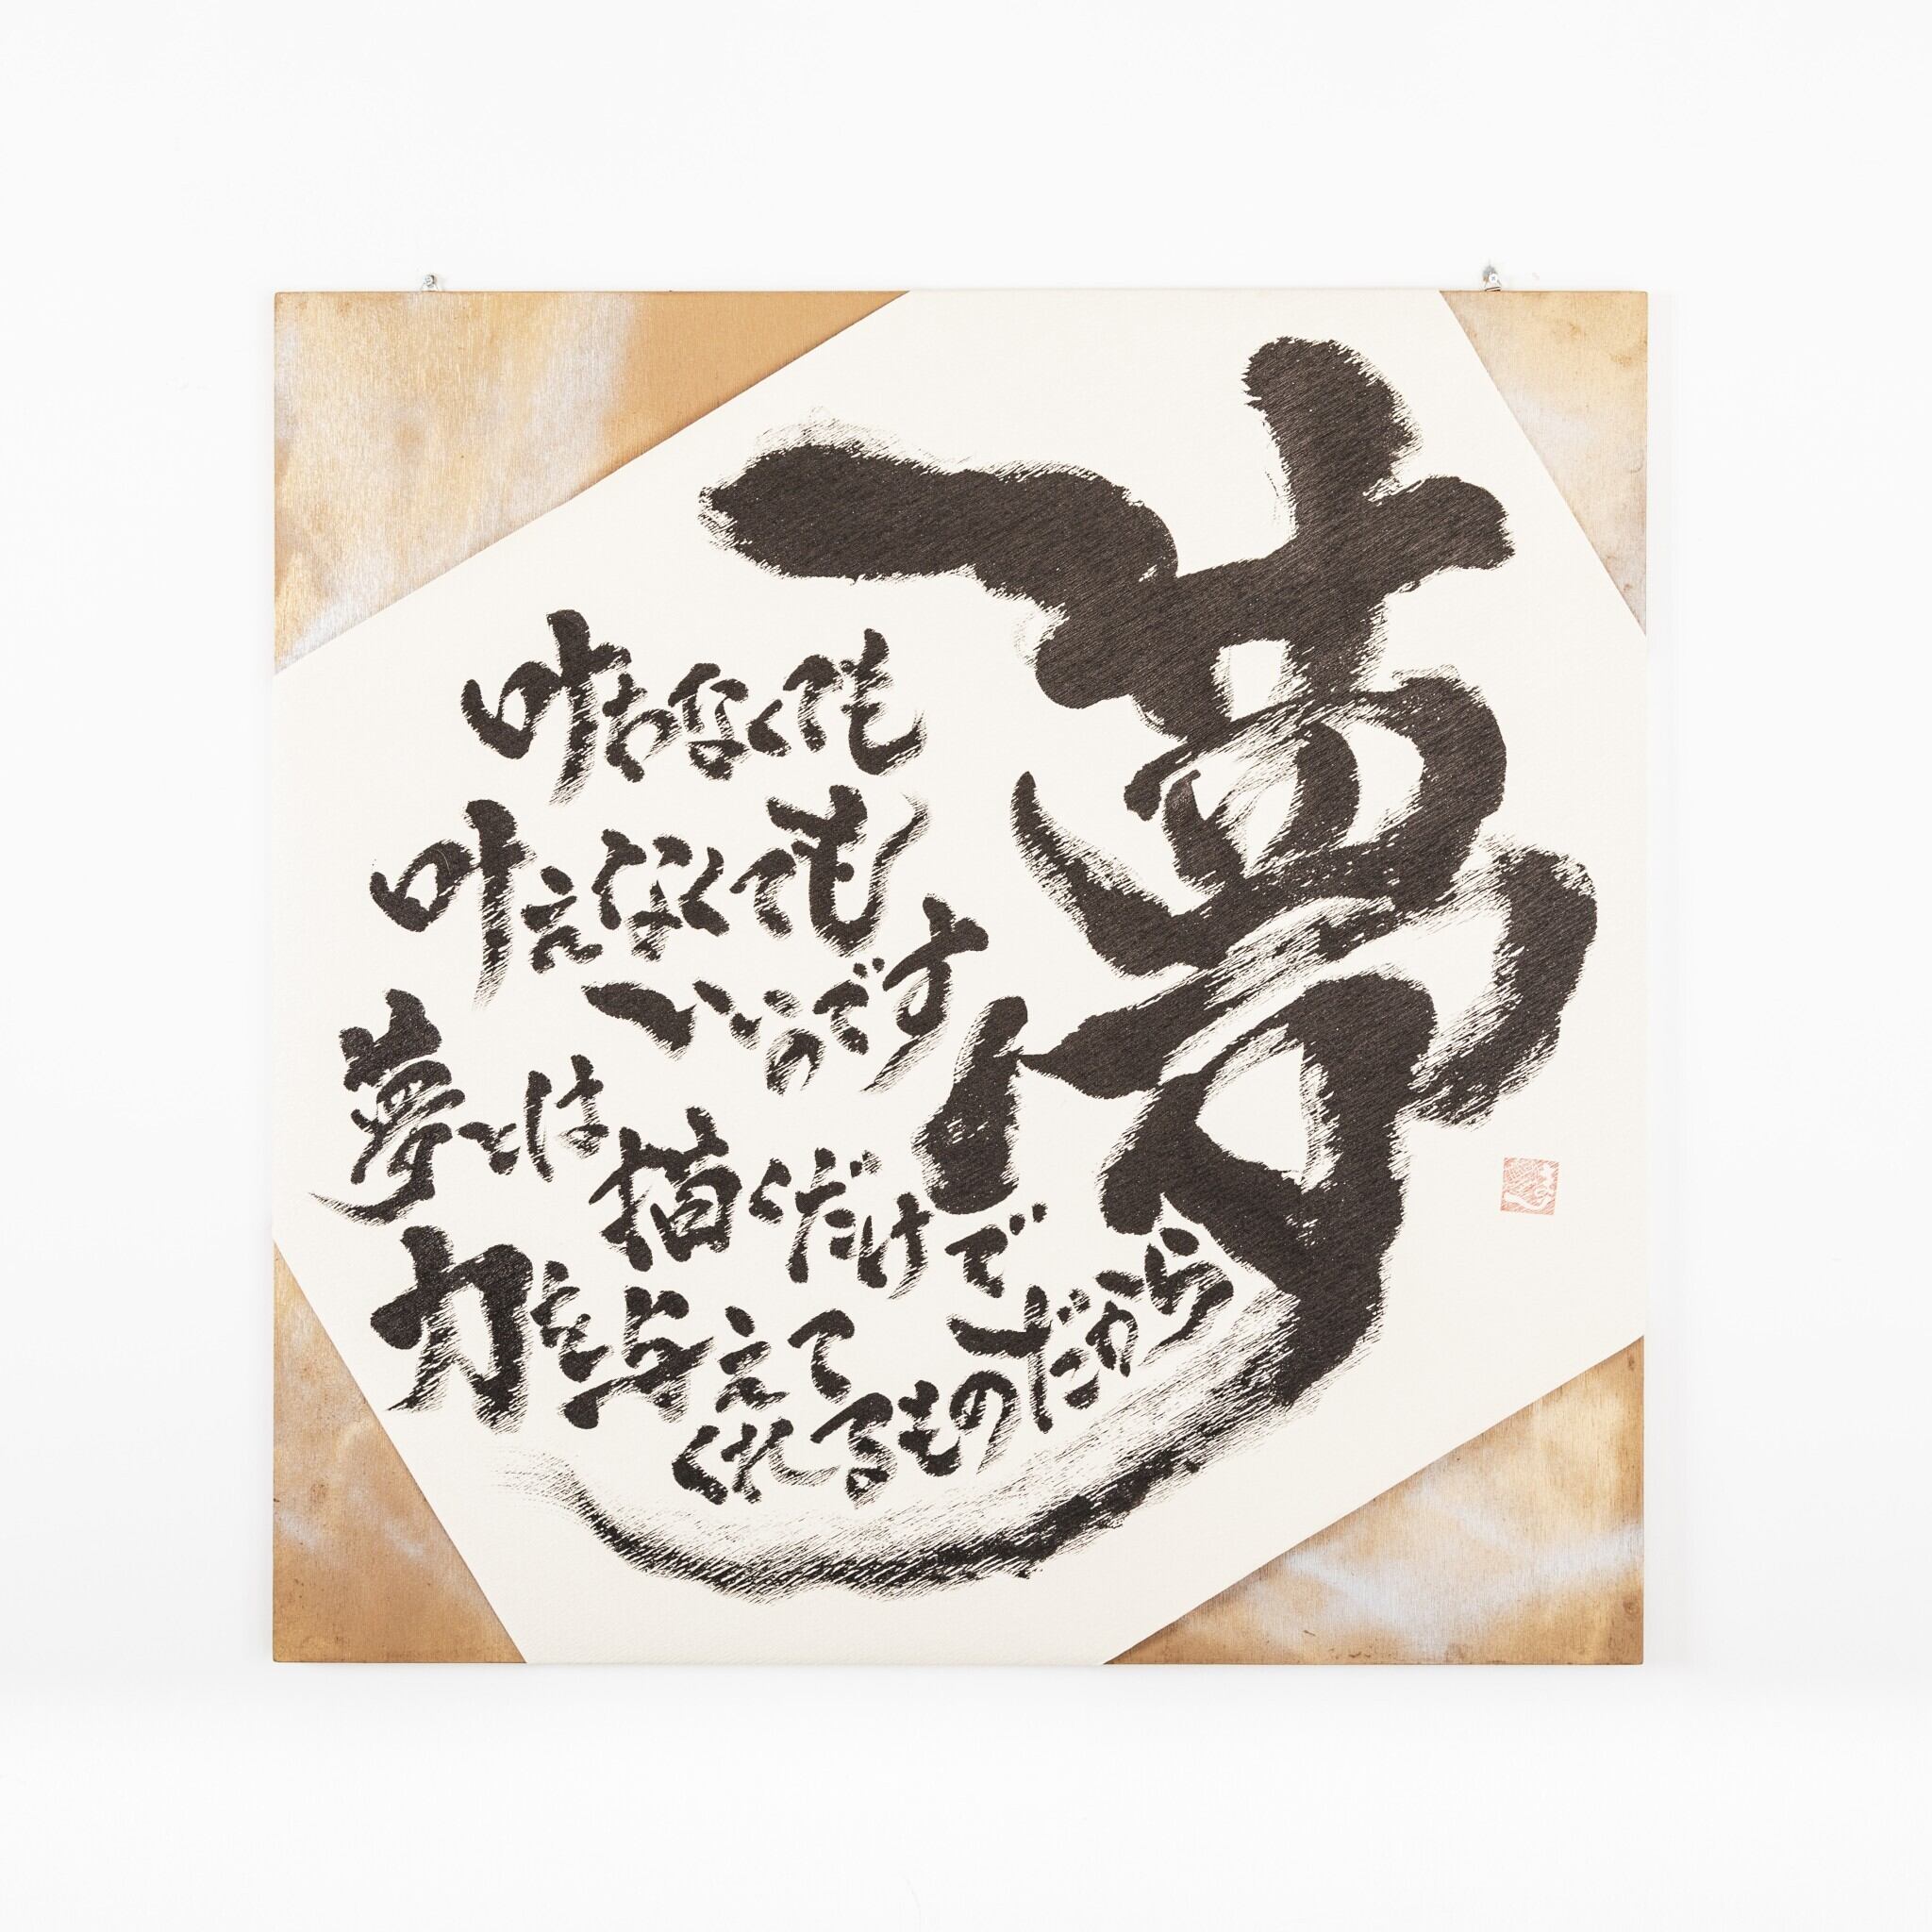 夢
叶わなくても
叶えなくても
いいのです
夢とは
描くだけで
力を与えて
くれるもの
だから